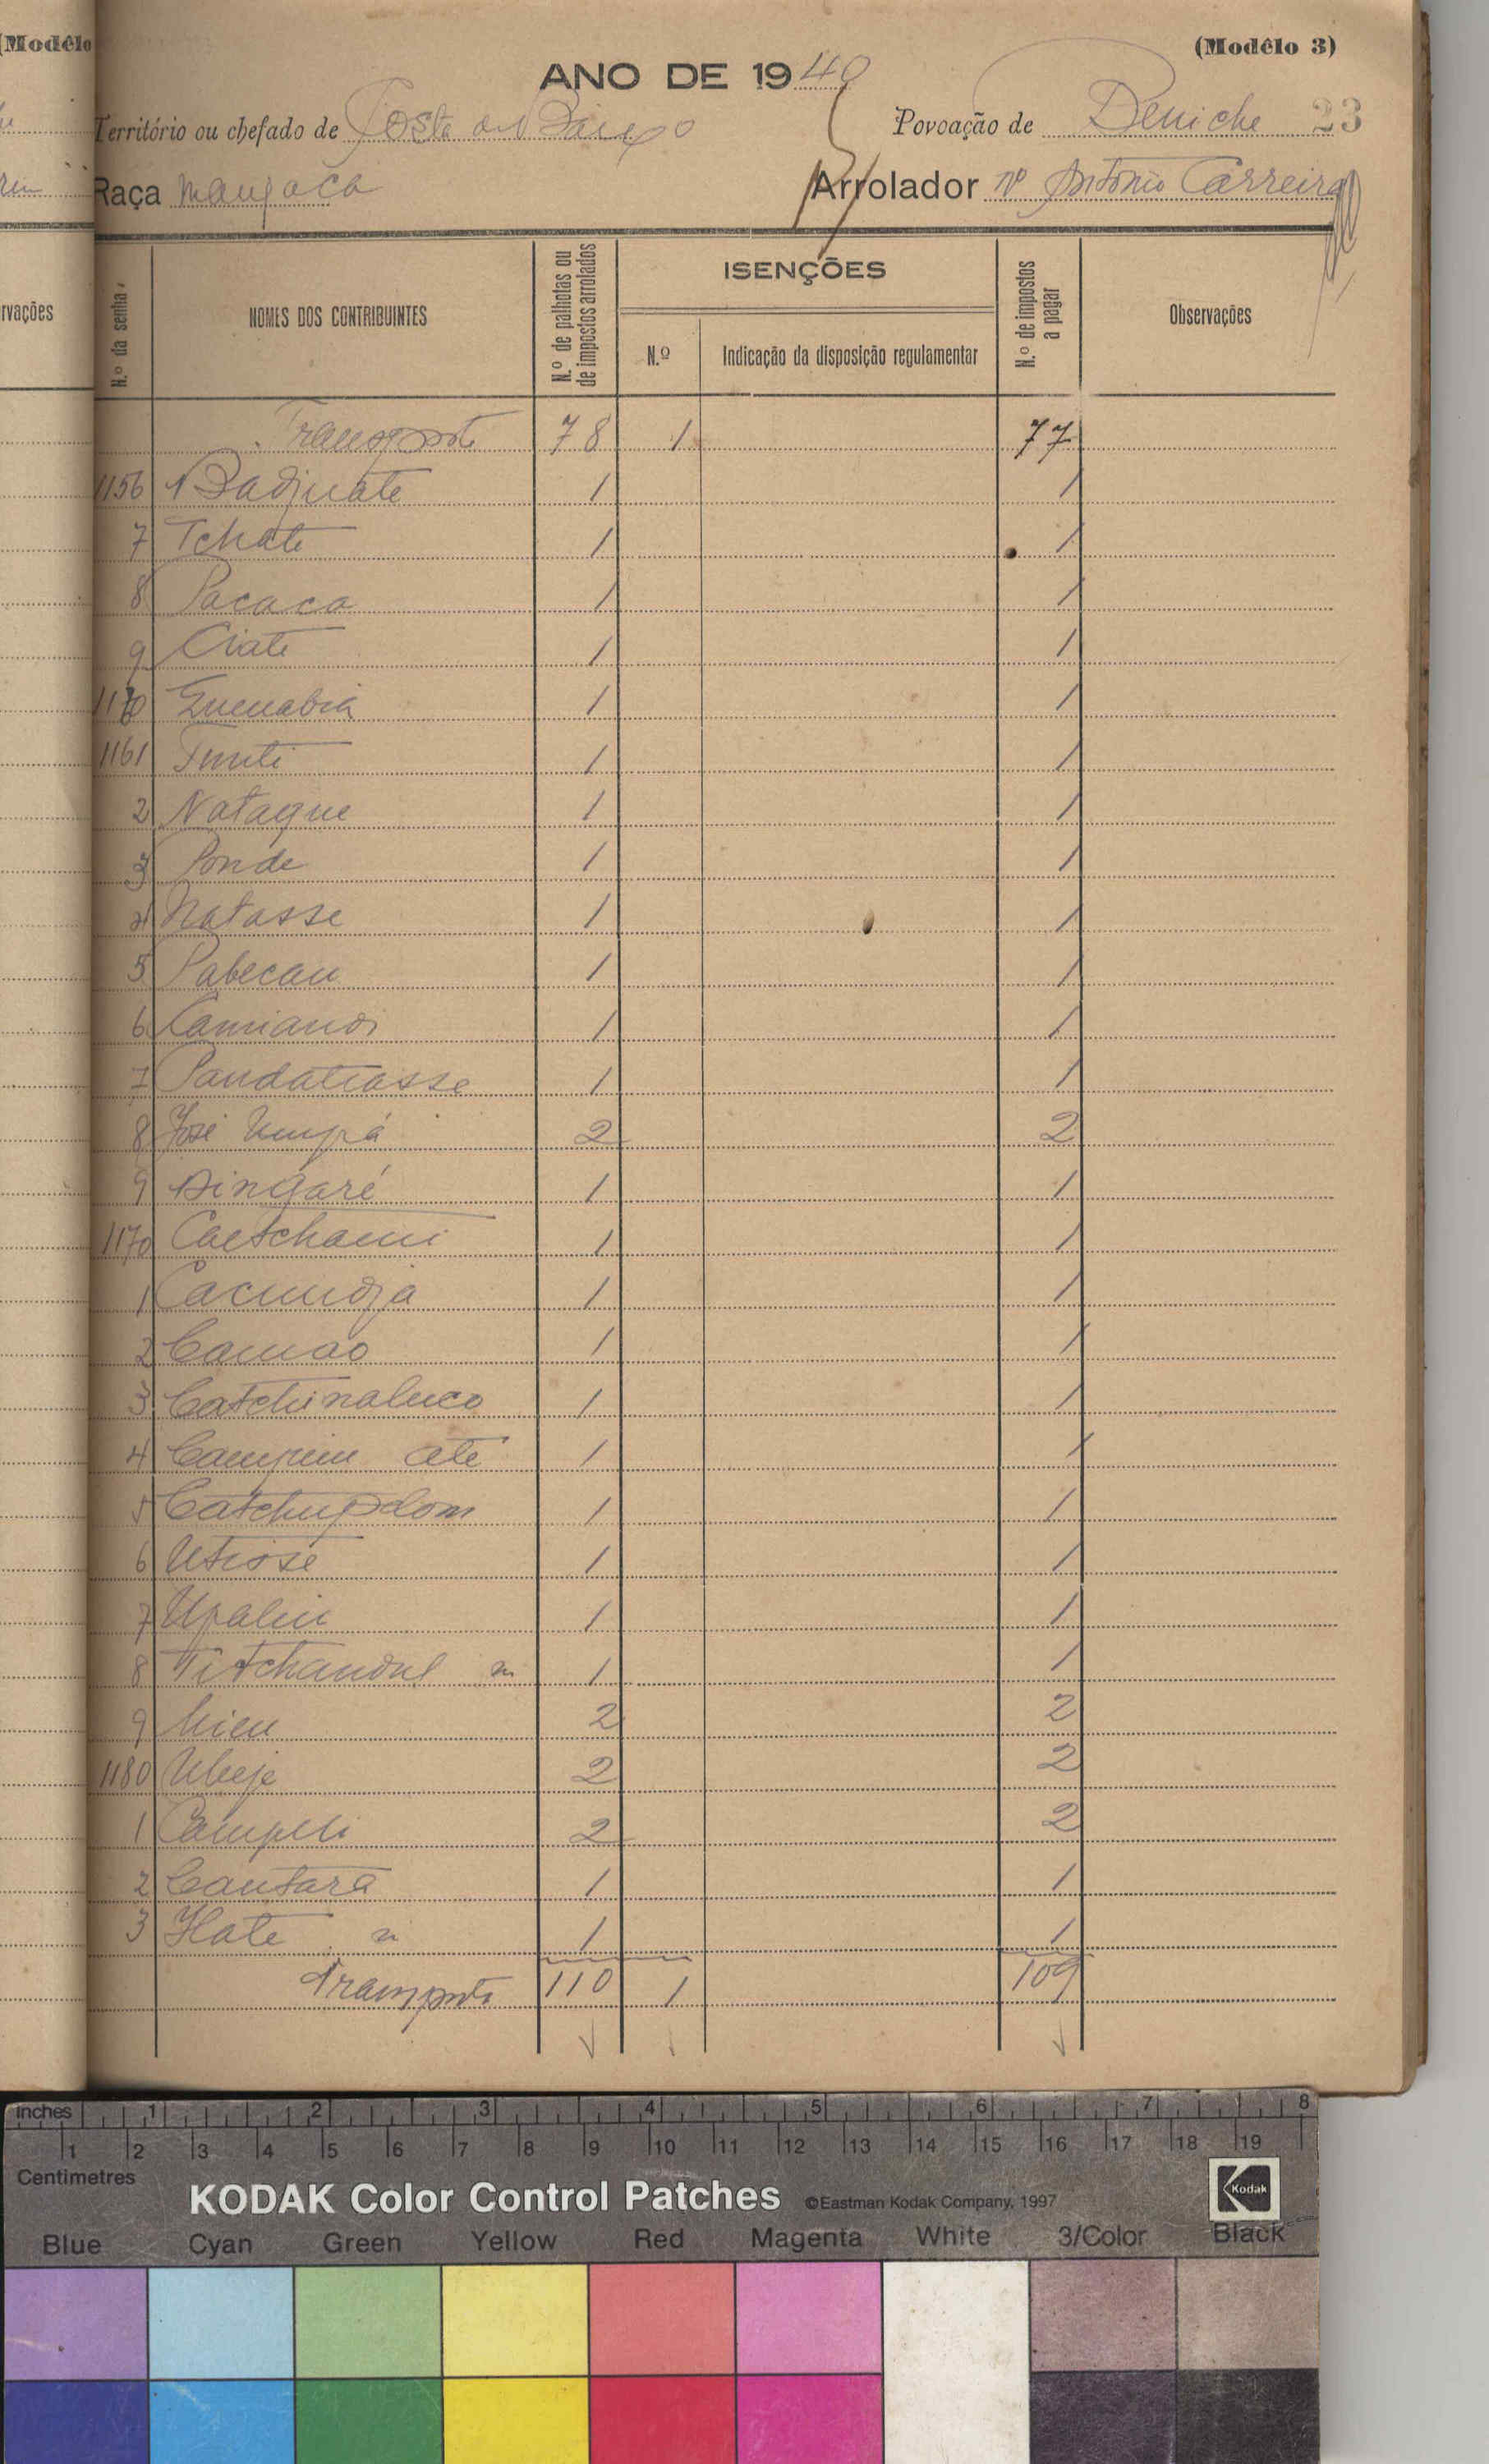 (Modêlo
(Modêlo 3)
ANO DE 1940
Território ou chefado de Posto
Povoação de Peniche 23
Raça Manjaca
Arrolador António Carreira
rvações
N.º da senha
NOMES DOS CONTRIBUINTES
N.º de palhotas ou de impostos arrolados
ISENÇÕES
N.º
Indicação da disposição regulamentar
N.º de impostos a pagar
Observações
Transporte 78 1 77
1156 Badjinate 1 1
7 Tchate 1 1
8 Pacaca 1 1
9 Ciate 1 1
1160 1 1
1161 1 1
2 Nataque 1 1
3 Ponde 1 1
4 Natasse 1 1
5 Pabecau 1 1
6 Camiandi 1 1
7 Pandatiasse 1 1
8 José 2 2
9 Dingaré 1 1
1170 Caetchami 1 1
1 Cacundja 1 1
2 1 1
3 Catchinaluco 1 1
4 até 1 1
5 Catchupdom 1 1
6 Utiosé 1 1
7 Upalin 1 1
8 Titchandul 1 1
9 2 2
1180 2 2
1 Campili 2 2
2 Cantará 1 1
3 Hate 1 1
Transporte 110 1 109
inches 1 2 3 4 5 6 7 8
1 2 3 4 5 6 7 8 9 10 11 12 13 14 15 16 17 18 19
Centimetres
KODAK Color Control Patches ©Eastman Kodak Company, 1997
Kodak
Blue Cyan Green Yellow Red Magenta White 3/Color Black